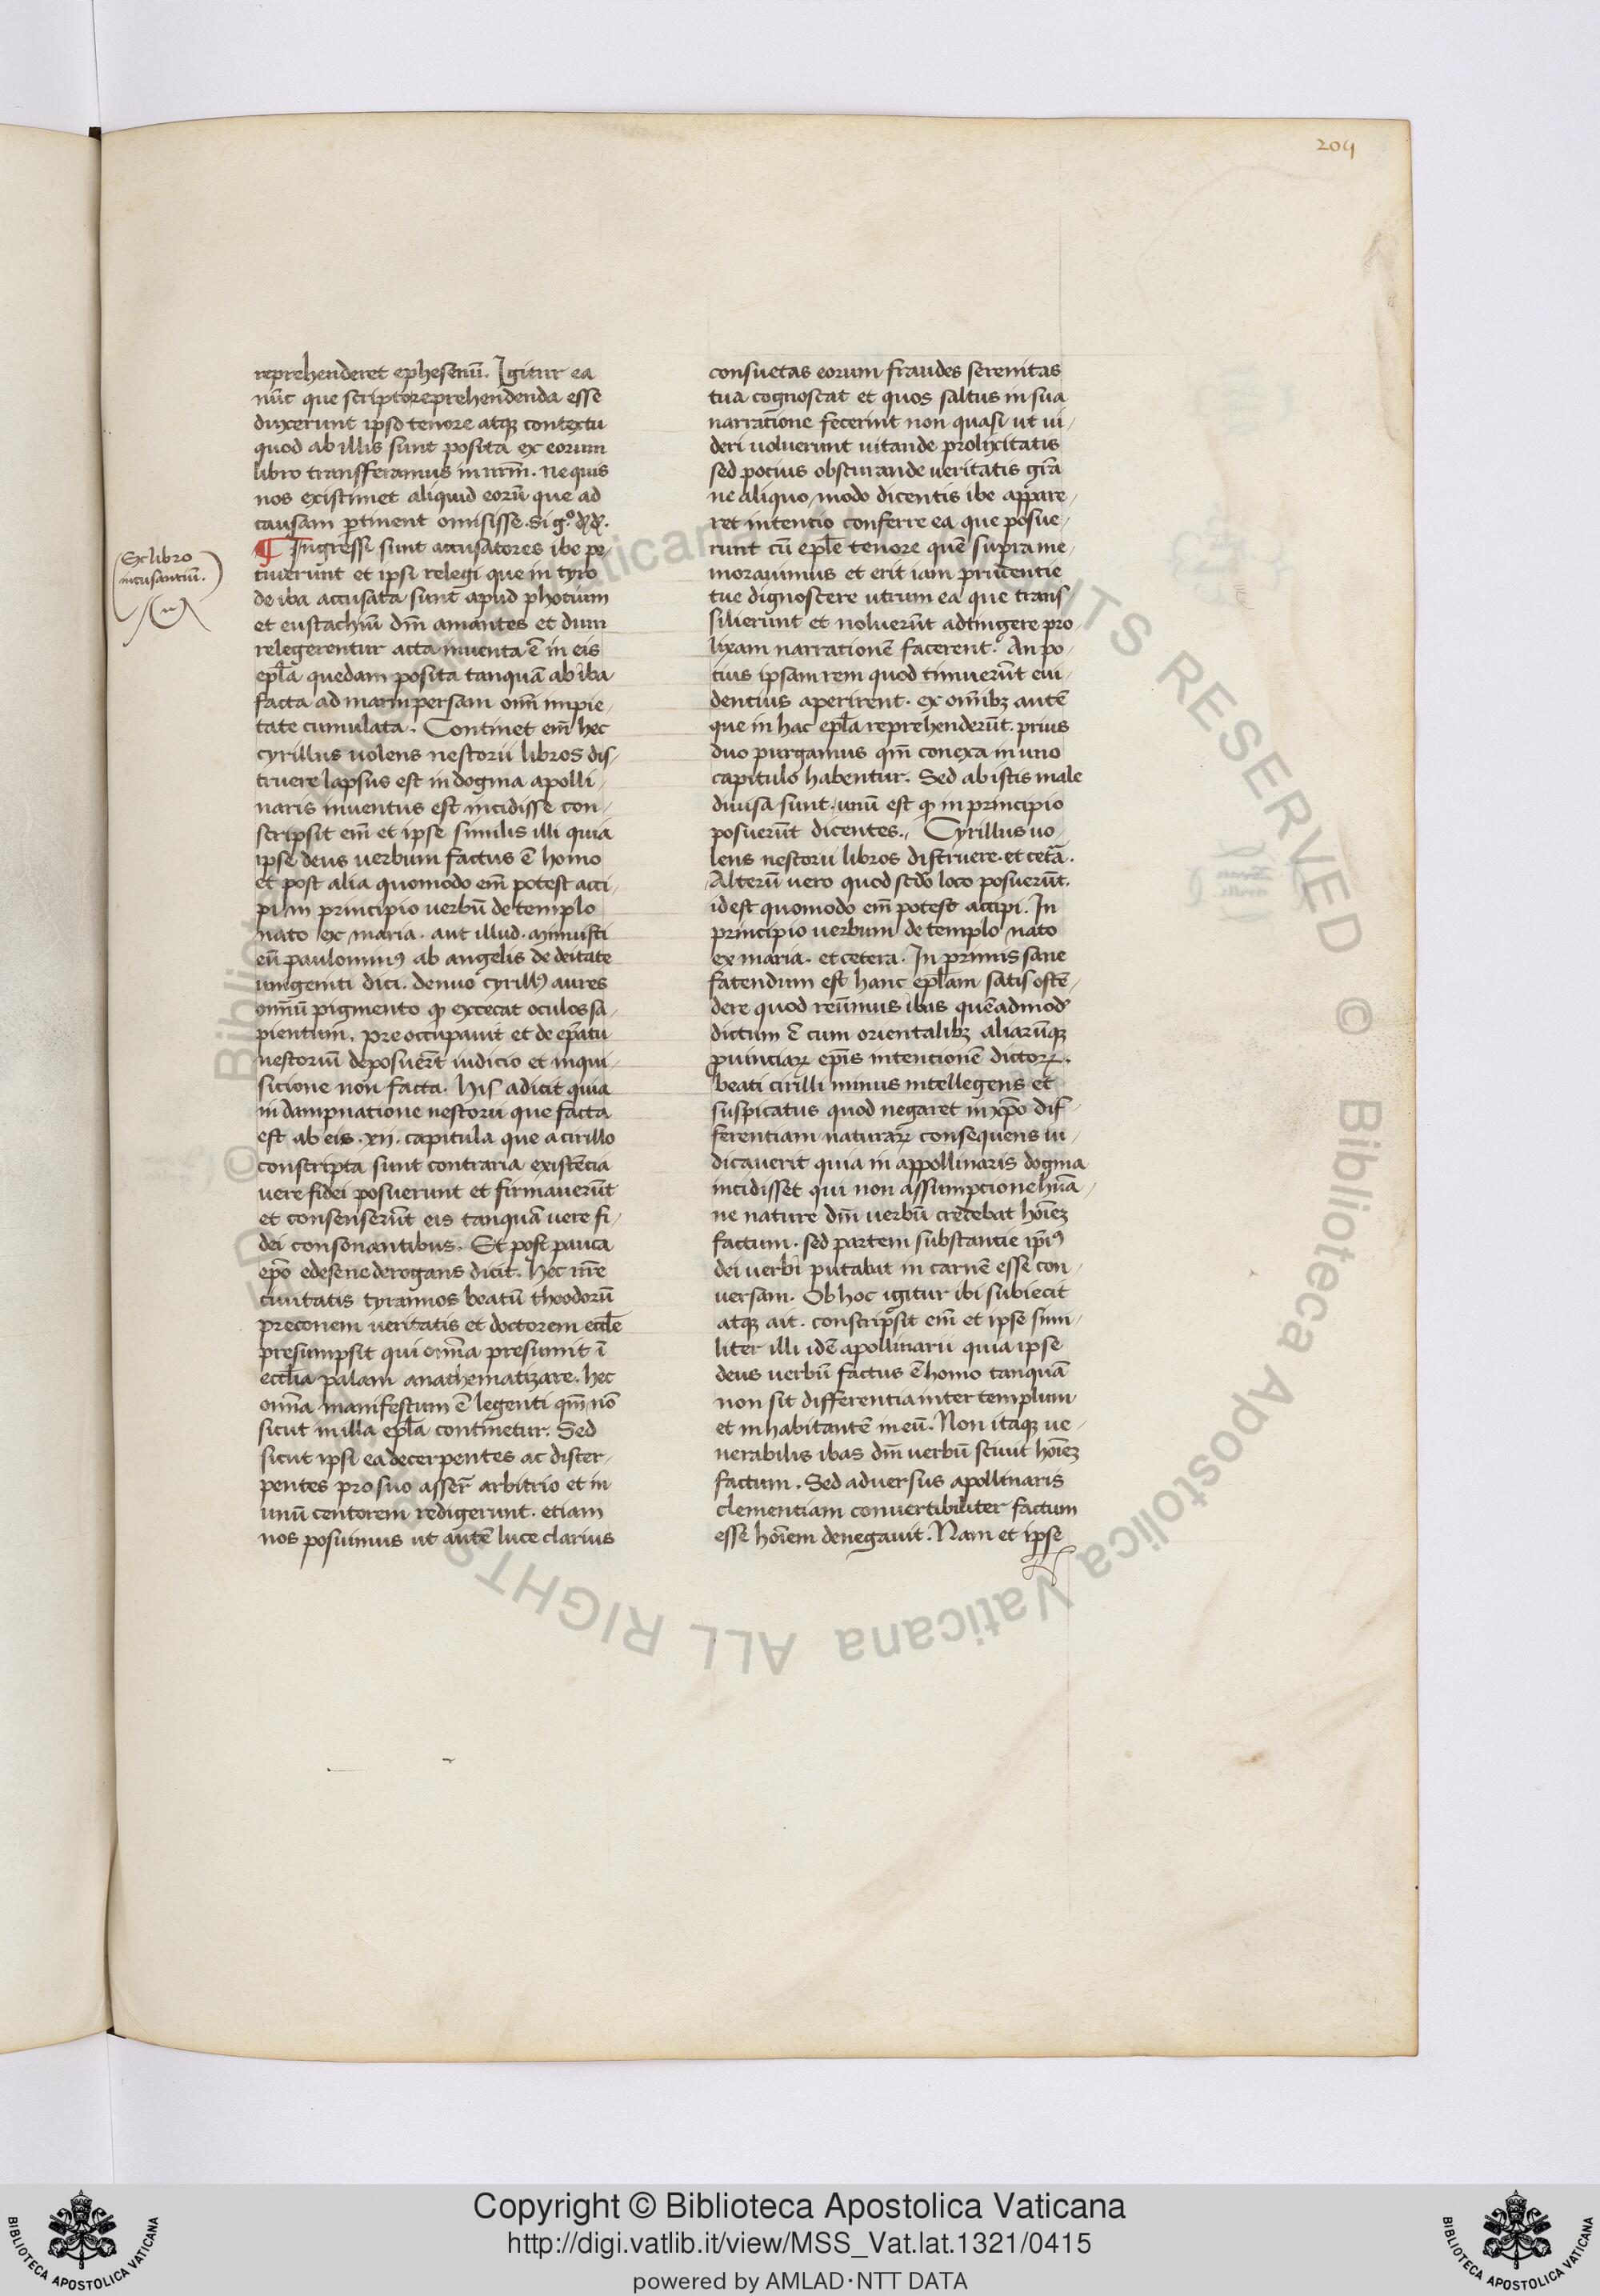 204
reprehenderet ephesenū. Igitur ea
nūc que scriptoreprehendenda esse
duxcerunt ipso tenore atqꝫ contextu
quod ab illis sunt posita ex eorum
libro transfferamus in nrm̄. ne quis
nos existimet aliquid eorū que ad
causam ꝑtinent omisisse. sig.º
Ex libro
incusantiū.
¶ Ingressi sunt accusatores ibe pe/
tiuerunt et ipsi relegi que in tyro
de iba accusata sunt apud photium
et eustachiū dm̄ amantes et dum
relegerentur acta inuenta ē in eis
epl̄a quedam posita tanquā ab iba
facta ad marin persam omī impie/
tate cumulata. Continet em̄ hec
cyrillus uolens nestorii libros dis/
truere lapsus est in dogma apolli/
naris inuentus est incidisse con/
scripsit em̄ et ipse similis illi quia
ipse deus uerbum factus ē homo
et post alia quomodo em̄ potest acci/
pi in principio uerbū de templo
nato ex maria. aut illud. minuisti
eū paulominꝰ ab angelis de deitate
unigeniti dici. denuo cyrillꝰ aures
omnū pigmento qꝫ excecat oculos sa/
pientum. preoccupauit et de ep̄atu
nestoriū deposuer̄t iudicio et inqui/
sicione non facta. his adicit quia
in dampnatione nestorii que facta
est ab eis .xii. capitula que a cirillo
conscripta sunt contraria existēcia
uere fidei posuerunt et firmauerūt
et consenserūt eis tanquā uere fi/
dei consonantibus. Et post pauca
ep̄o edesene derogans dicit. hec nr̄e
ciuitatis tyrannos beatū theodorū
preconem ueritatis et doctorem eccl̄e
presumpsit qui omīa presumit ī
eccl̄ia palam anathematizare. hec
omīa manifestum ē legenti qm̄ nō
sicut in illa epl̄a continetur. Sed
sicut ipsi ea decerpentes ac discer/
pentes pro suo asser̄ arbitrio et in
unū centorem redigerunt. etiam
nos posuimus ut autē luce clarius
consuetas eorum fraudes serenitas
tua cognoscat et quos saltus in sua
narratione fecerint non quasi ut ui/
deri uoluerunt uitande prolixitatis
sed pocius obscurande ueritatis gr̄a
ne aliquo modo dicentis ibe appare/
ret intencio conferre ea que posue/
runt cū epl̄e tenore quē supra me/
morauimus et erit iam prudentie
tue dignoscere utrum ea que trans/
silierunt et noluerūt adtingere pro/
lixam narrationē facerent. An po/
tius ipsam rem quod timuerūt eui/
dentius aperirent. ex omībꝫ autē
que in hac epl̄a reprehenderūt. prius
duo purgamus qm̄ conexa in uno
capitulo habentur. Sed ab istis male
diuisa sunt. unū est qꝫ in principio
posuerūt dicentes. Cyrillus uo/
lens nestorii libros distruere. et ceta.
Alterū uero quod scdō loco posuerūt.
id est quomodo em̄ potest accipi. In
principio uerbum de templo nato
ex maria. et cetera. In primis sane
fatendum est hanc epl̄am satis ostē/
dere quod reūmus ibas quēadmodᵒ
dictum ē cum orientalibꝫ aliarūqꝫ
ꝓuinciaꝝ ep̄is intentionē dictoꝝ.
beati cirilli minus intellegens et
suspicatus quod negaret in xp̄o dif/
ferentiam naturaꝝ consequens iu/
dicauerit quia in appollinaris dogma
incidisset qui non assumpcione hūa/
ne nature dm̄ uerbū credebat hoīeꝫ
factum. sed partem substantie ip̄iꝰ
dei uerbi putabat in carnē esse con/
uersam. Ob hoc igitur ibi subiecit
atqꝫ ait. conscripsit em̄ et ipse simi/
liter illi idē apollinarii quia ipse
deus uerbū factus ē homo tanquā
non sit differentia inter templum
et inhabitantē in eū. Non itaqꝫ ue/
nerabilis ibas dm̄ uerbū sciuit hoīeꝫ
factum. Sed aduersus apollinaris
clementiam conuertibiliter factum
esse hoīem denegauit. Nam et ipse
© Biblioteca Apostolica Vaticana ALL RIGHTS RESERVED
Copyright © Biblioteca Apostolica Vaticana
http://digi.vatlib.it/view/MSS_Vat.lat.1321/0415
powered by AMLAD·NTT DATA
BIBLIOTECA APOSTOLICA VATICANA
BIBLIOTECA APOSTOLICA VATICANA